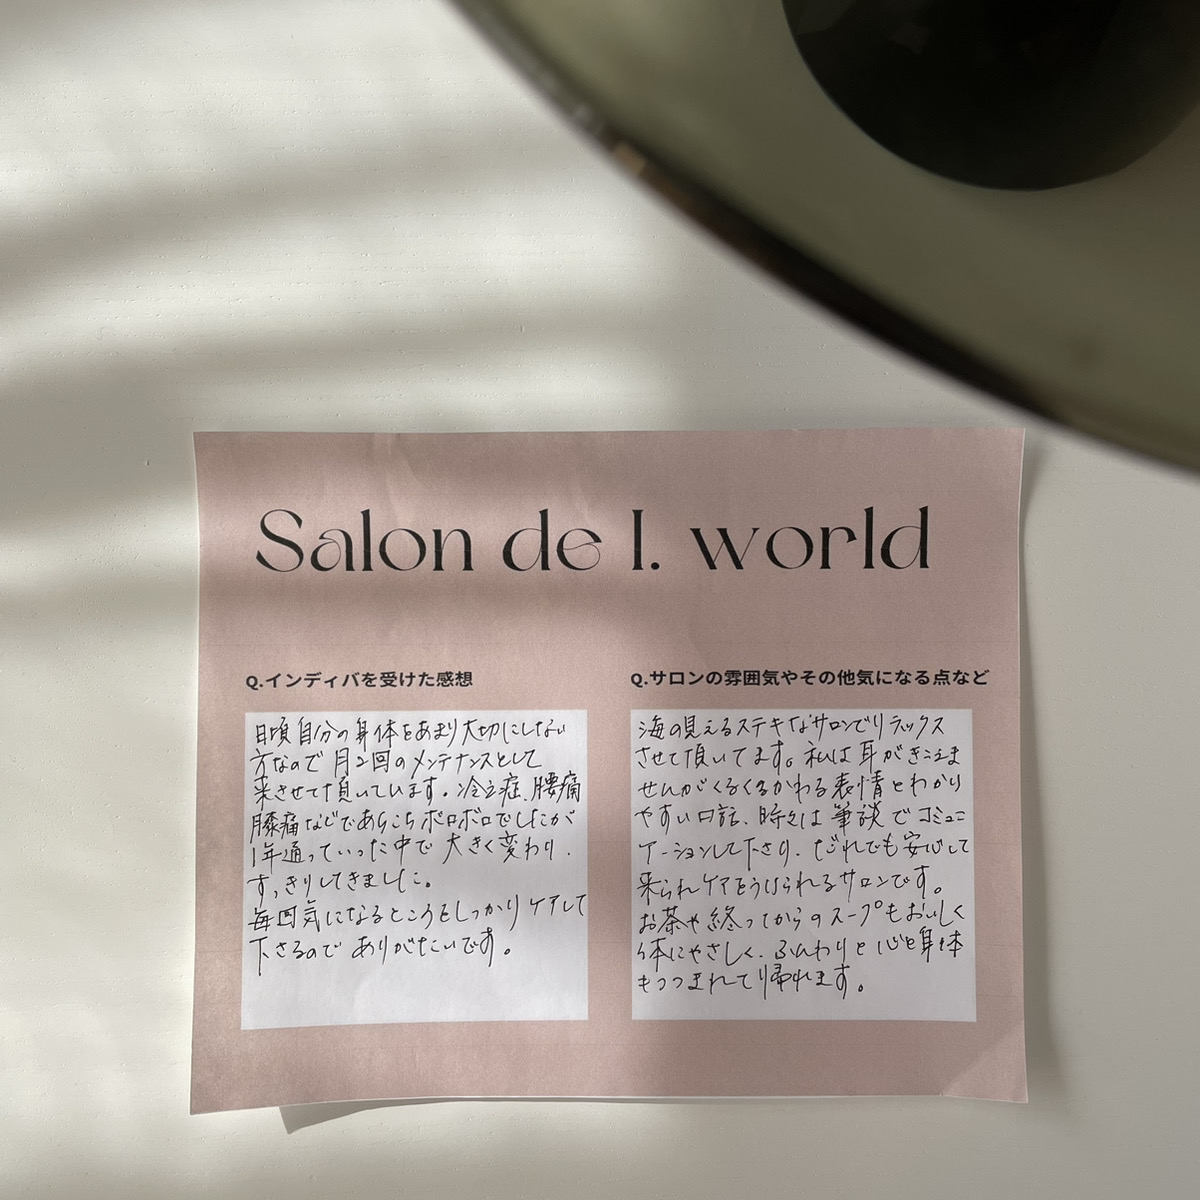 Salon de I. world
Q.インディバを受けた感想
日頃自分の身体をあまり大切にしない
方なので月2回のメンテナンスとして
来させて頂いています。冷え症、腰痛
膝痛などであちこちボロボロでしたが
1年通っていった中で大きく変わり、
すっきりしてきました。
毎回気になるところをしっかりケアして
下さるのでありがたいです。
Q.サロンの雰囲気やその他気になる点など
海の見えるステキなサロンでリラックス
させて頂いてます。私は耳がきこえま
せんがくるくるかわる表情とわかり
やすい口話、時々は筆談でコミュニ
ケーションして下さり、だれでも安心して
来られケアをうけられるサロンです。
お茶や終ってからのスープもおいしく
体にやさしく、ふんわりと心と身体
もつつまれて帰れます。